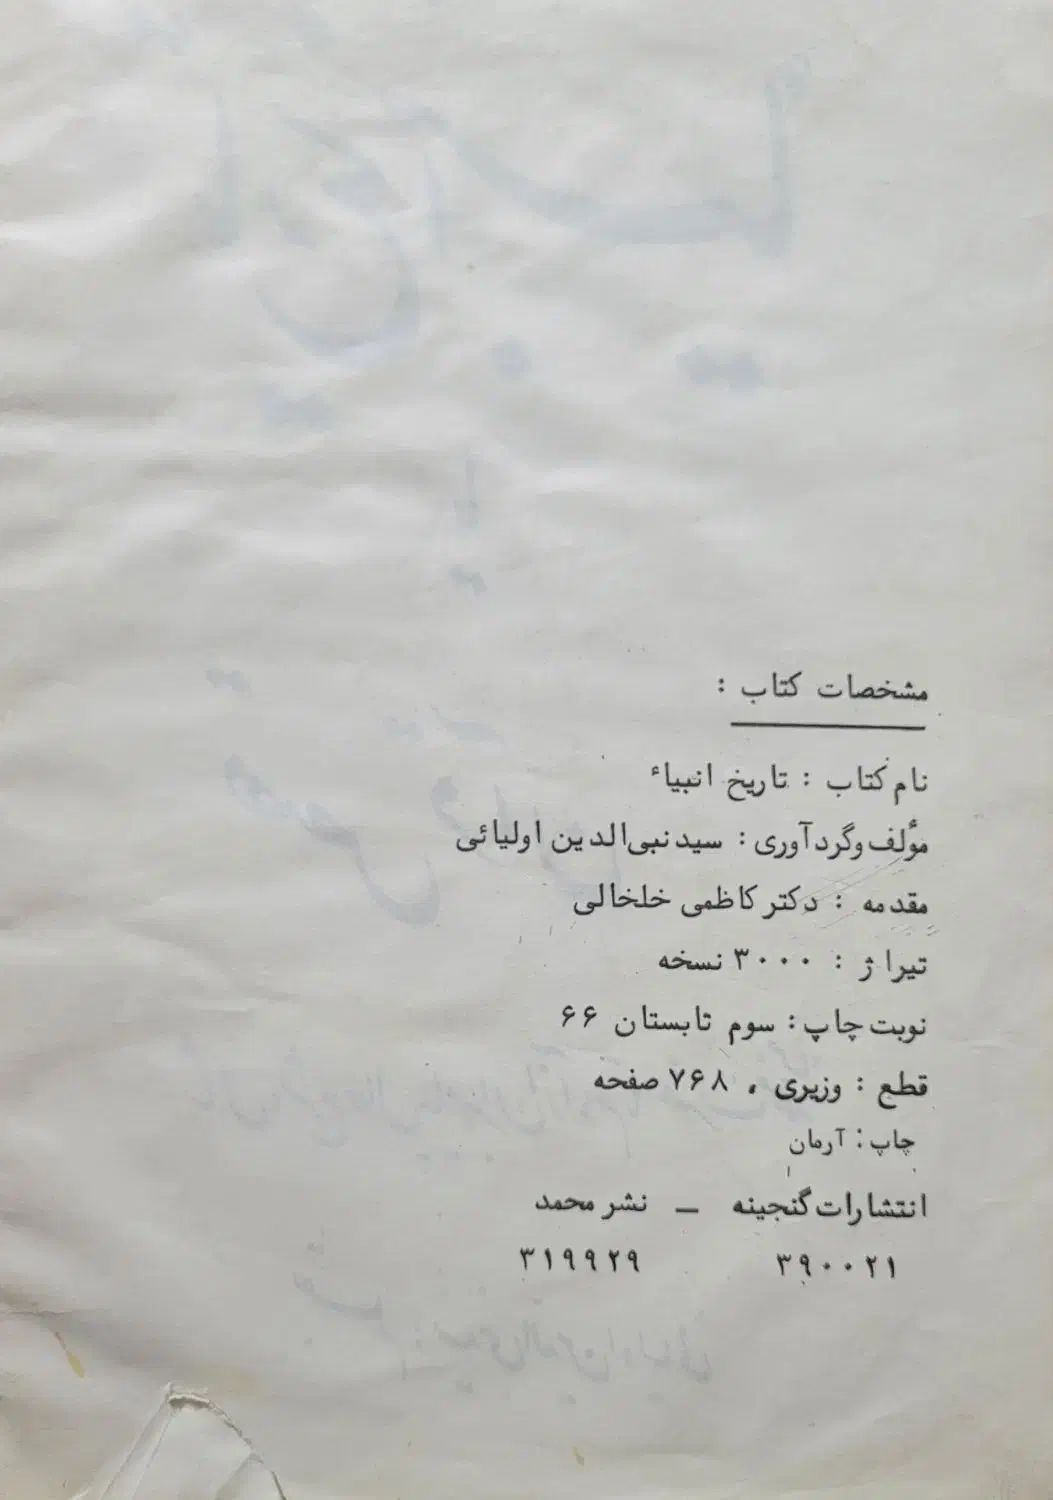 مشخصات کتاب :
نام کتاب : تاریخ انبیاء
مؤلف وگردآوری : سید نبی‌الدین اولیائی
مقدمه : دکتر کاظمی خلخالی
تیراژ : ۳۰۰۰ نسخه
نوبت چاپ : سوم تابستان ۶۶
قطع : وزیری ، ۷۶۸ صفحه
چاپ : آرمان
انتشارات گنجینه — نشر محمد
۳۹۰۰۲۱ ۳۱۹۹۲۹